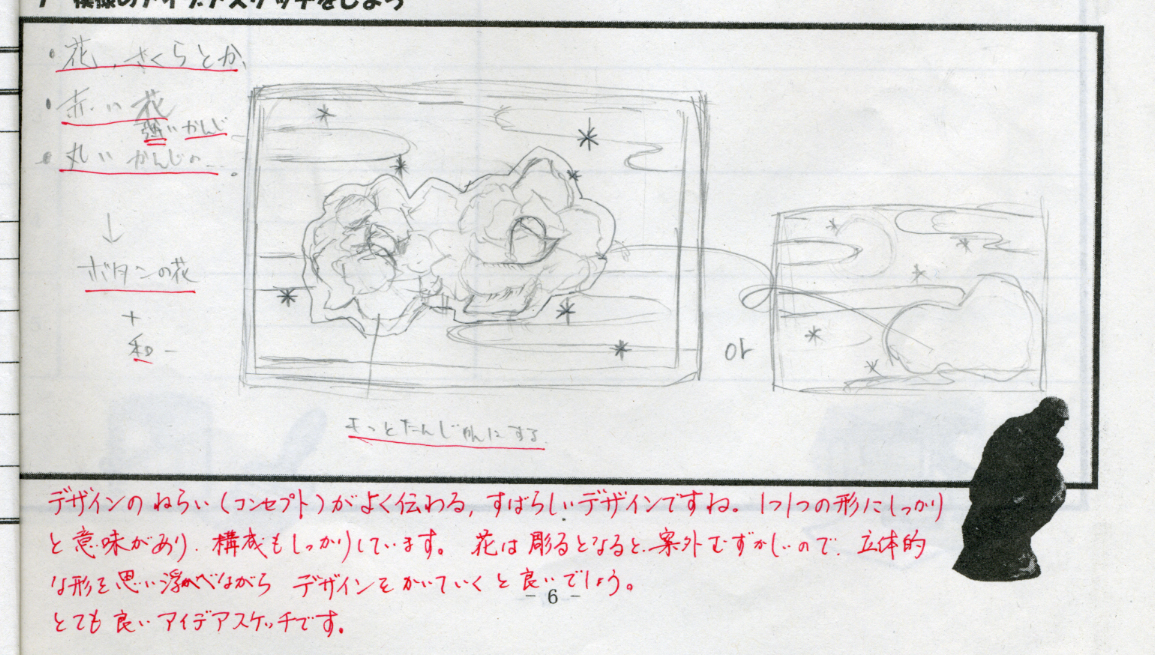 模様のアイデアスケッチをしよう
・花、さくらとか、
・赤い花
強いかんじ
・丸いかんじの…
↓
ボタンの花
+
和
or
もっとたんじゅんにする
デザインのねらい(コンセプト)がよく伝わる,すばらしいデザインですね。1つ1つの形にしっかり
と意味があり、構成もしっかりしています。花は彫るとなると、案外むずかしいので、立体的
な形を思い浮かべながら デザインをかいていくと良いでしょう。
- 6 -
とても良いアイデアスケッチです。